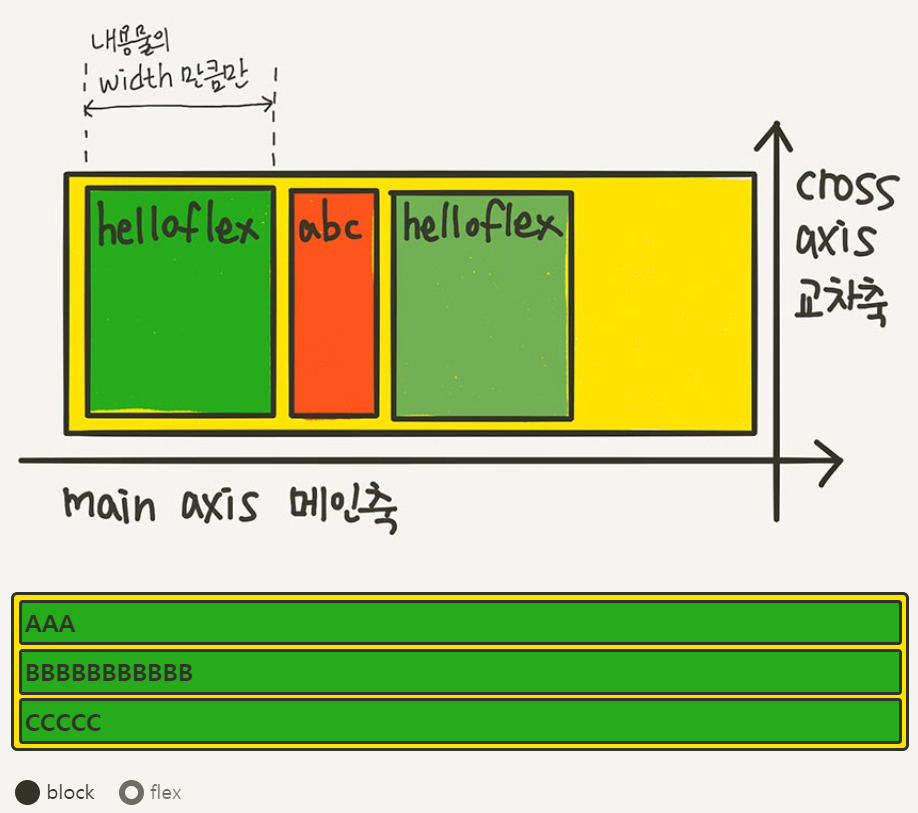 내용물의
width 만큼만
helloflex
abc
helloflex
cross
axis
교차축
main axis 메인축
AAA
BBBBBBBBBBB
CCCCC
block
flex